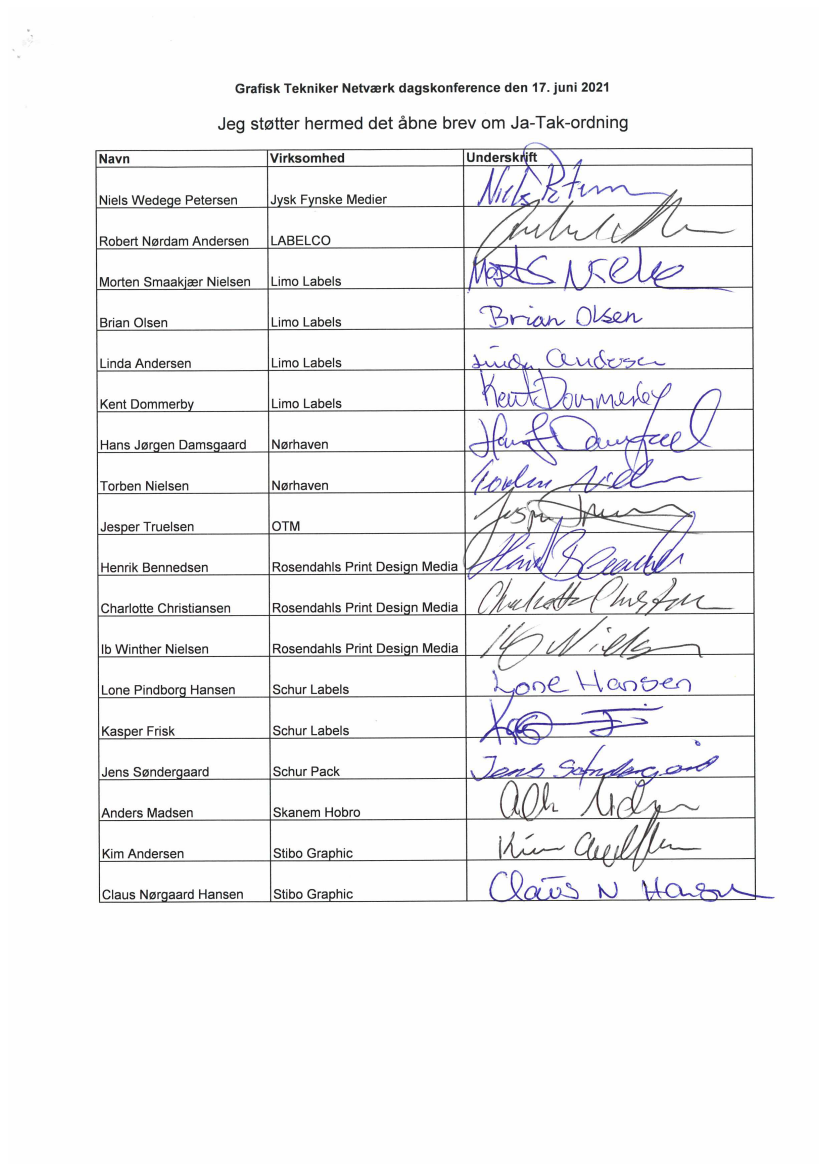 Grafisk Tekniker Netværk dagskonference den 17. juni 2021
Jeg støtter hermed det åbne brev om Ja-Tak-ordning
Navn Virksomhed Underskrift
Niels Wedege Petersen Jysk Fynske Medier Niels
Robert Nørdam Andersen LABELCO
Morten Smaakjær Nielsen Limo Labels
Brian Olsen Limo Labels Brian Olsen
Linda Andersen Limo Labels Linda Andersen
Kent Dommerby Limo Labels Kent Dommerby
Hans Jørgen Damsgaard Nørhaven
Torben Nielsen Nørhaven Torben
Jesper Truelsen OTM
Henrik Bennedsen Rosendahls Print Design Media
Charlotte Christiansen Rosendahls Print Design Media Charlotte
Ib Winther Nielsen Rosendahls Print Design Media
Lone Pindborg Hansen Schur Labels Lone Hansen
Kasper Frisk Schur Labels
Jens Søndergaard Schur Pack Jens Søndergård
Anders Madsen Skanem Hobro
Kim Andersen Stibo Graphic Kim
Claus Nørgaard Hansen Stibo Graphic Claus N Hansen